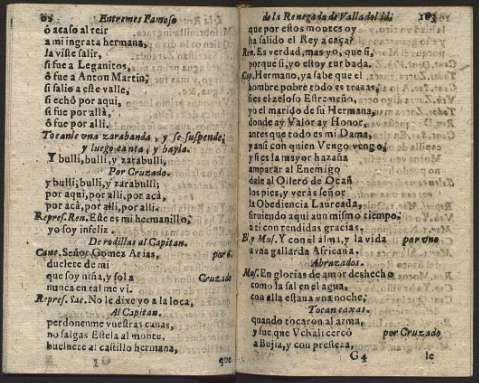 Entremes Famoso
ò acaso al reir
a mi ingrata hermana,
la viste salir,
si fue a Leganitos,
ò fue a Anton Martin,
si salio a este valle,
si echò por aqui,
si fue por allà,
ò fue por alli.
Tocanle vna zarabanda, y se suspende,
y luego canta, y bayla.
Y bulli, bulli, y zarabulli,
Por Cruzado.
y bulli, bulli, y zarabulli;
por aqui, por alli, por acà,
por acà, por aqui, por alli.
Repres. Ren. Este es mi hermanillo,
yo soy infeliz.
De rodillas al Capitan.
Cant. Señor Gomez Arias, por 6.
duelete de mi
que soy niña, y sola Cruzado
nunca en tal me vi.
Repres. Sac. No le dixe yo a la loca,
Al Capitan.
perdonenme vuestras canas,
no salgas Estela al monte,
buelvete al castillo hermana,
que
de la Renegada de Valladolid. 103
que por estos montes oy
ha salido el Rey a caça?
Ren. Es verdad, mas yo, que si,
porque si, yo estoy turbada.
Cap. Hermano, ya sabe que el
hombre pobre todo es trazas,
si es el zeloso Estremeño,
yo el marido de su Hermana,
donde ay Valor ay Honor,
antes que todo es mi Dama,
y assi con quien Vengo vengo;
y si es la mayor hazaña
amparar al Enemigo
dale al Ollero de Ocaña
los pies, y verà s señor
la Obediencia Laureada,
siruiendo aqui aun mismo tiempo,
a ti con rendidas gracias.
El, y Mus. Y con el alma, y la vida por vno
a vna gallarda Africana.
Abrazados.
Mus. En glorias de amor deshecho
como la sal en el agua,
con ella estaua vna noche,
Tocan caxas.
quando tocaron al arma,
y fue que Vchali cercò por Cruzado
a Bujia, y con presteza,
G 4 le